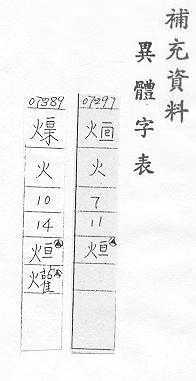 補充資料
異體字表
07297
火
7
11
烜
07389
火
10
14
烜
爟